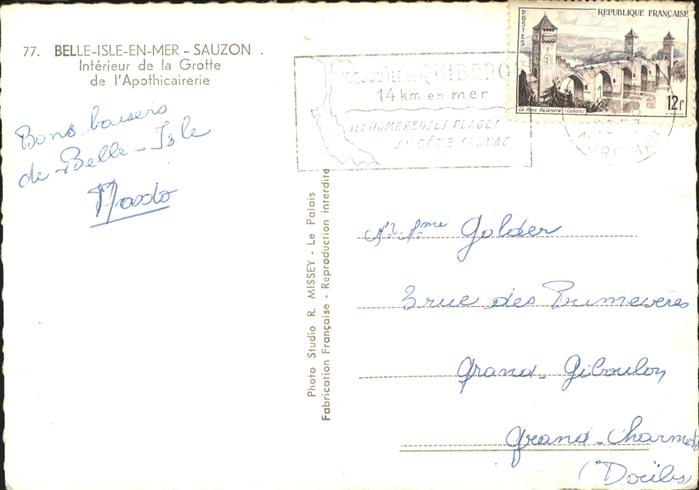 77. BELLE-ISLE-EN-MER - SAUZON.
Intérieur de la Grotte
de l'Apothicairerie
Bons baisers
de Belle-Isle
PRESQU'ILE de QUIBERON
14 km en mer
SES NOMBREUSES PLAGES
SA CÔTE SAUVAGE
POSTES
REPUBLIQUE FRANÇAISE
Le Pont Valentré (Cahors)
12F
Photo Studio R. MISSEY - Le Palais
Fabrication Française - Reproduction interdite
Golder
3 rue des Primevères
Grand-Giboulon
Grand-Charmo
(Doubs